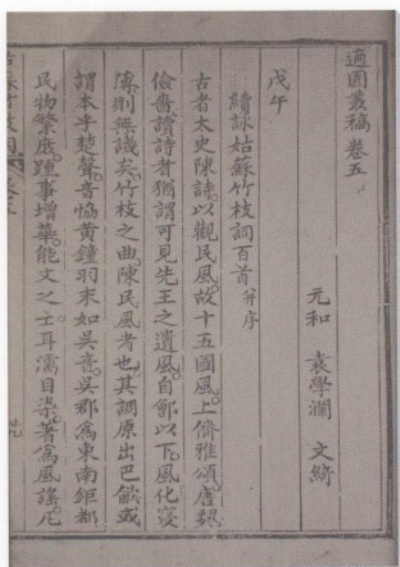 適園叢稿卷五
元和 袁學瀾 文綺
戊午
續詠姑蘇竹枝詞百首并序
古者太史陳詩。以觀民風。故十五國風。上儕雅頌。唐魏
儉嗇。讀詩者猶謂可見先王之遺風。自鄶以下。風化寖
薄。則無譏矣。竹枝之曲。陳民風者也。其調原出巴歈。或
謂本乎楚聲。音恊黃鐘羽。末如吳音。吳郡爲東南鉅都
民物繁庶。踵事增華。能文之士。耳濡目染。著爲風謠。凡
姑蘇竹枝詞